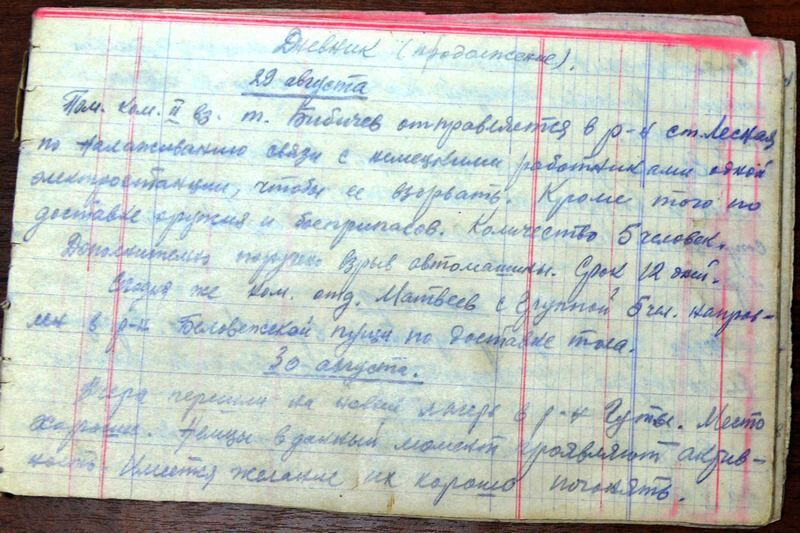 Дневник (продолжение).
29 августа
Пом. ком. II вз. т. Бибичев отправляется в р-н ст. Лесная
по налаживанию связи с немецкими работниками одной
электростанции, чтобы ее взорвать. Кроме того по
доставке оружия и боеприпасов. Количество 5 человек.
Дополнительно поручено взрыв автомашины. Срок 12 дней.
Сегодня же ком. отд. Матвеев с группой 5 чел. направ-
лен в р-н Беловежской пущи по доставке тола.
30 августа.
Вчера перешли на новый лагерь в р-н Гутты. Место
хорошее. Немцы в данный момент проявляют актив-
ность. Имеется желание их хорошо погонять.